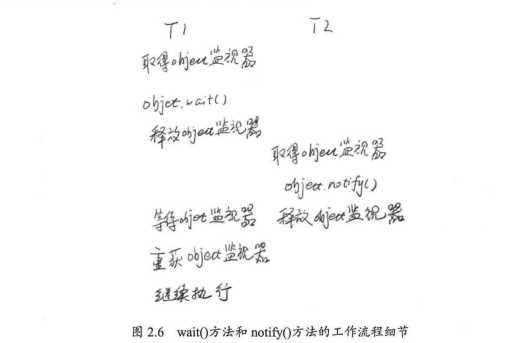 T1 T2
取得object监视器
object.wait()
释放object监视器
取得object监视器
object.notify()
等待object监视器 释放object监视器
重获object监视器
继续执行
图 2.6 wait()方法和 notify()方法的工作流程细节